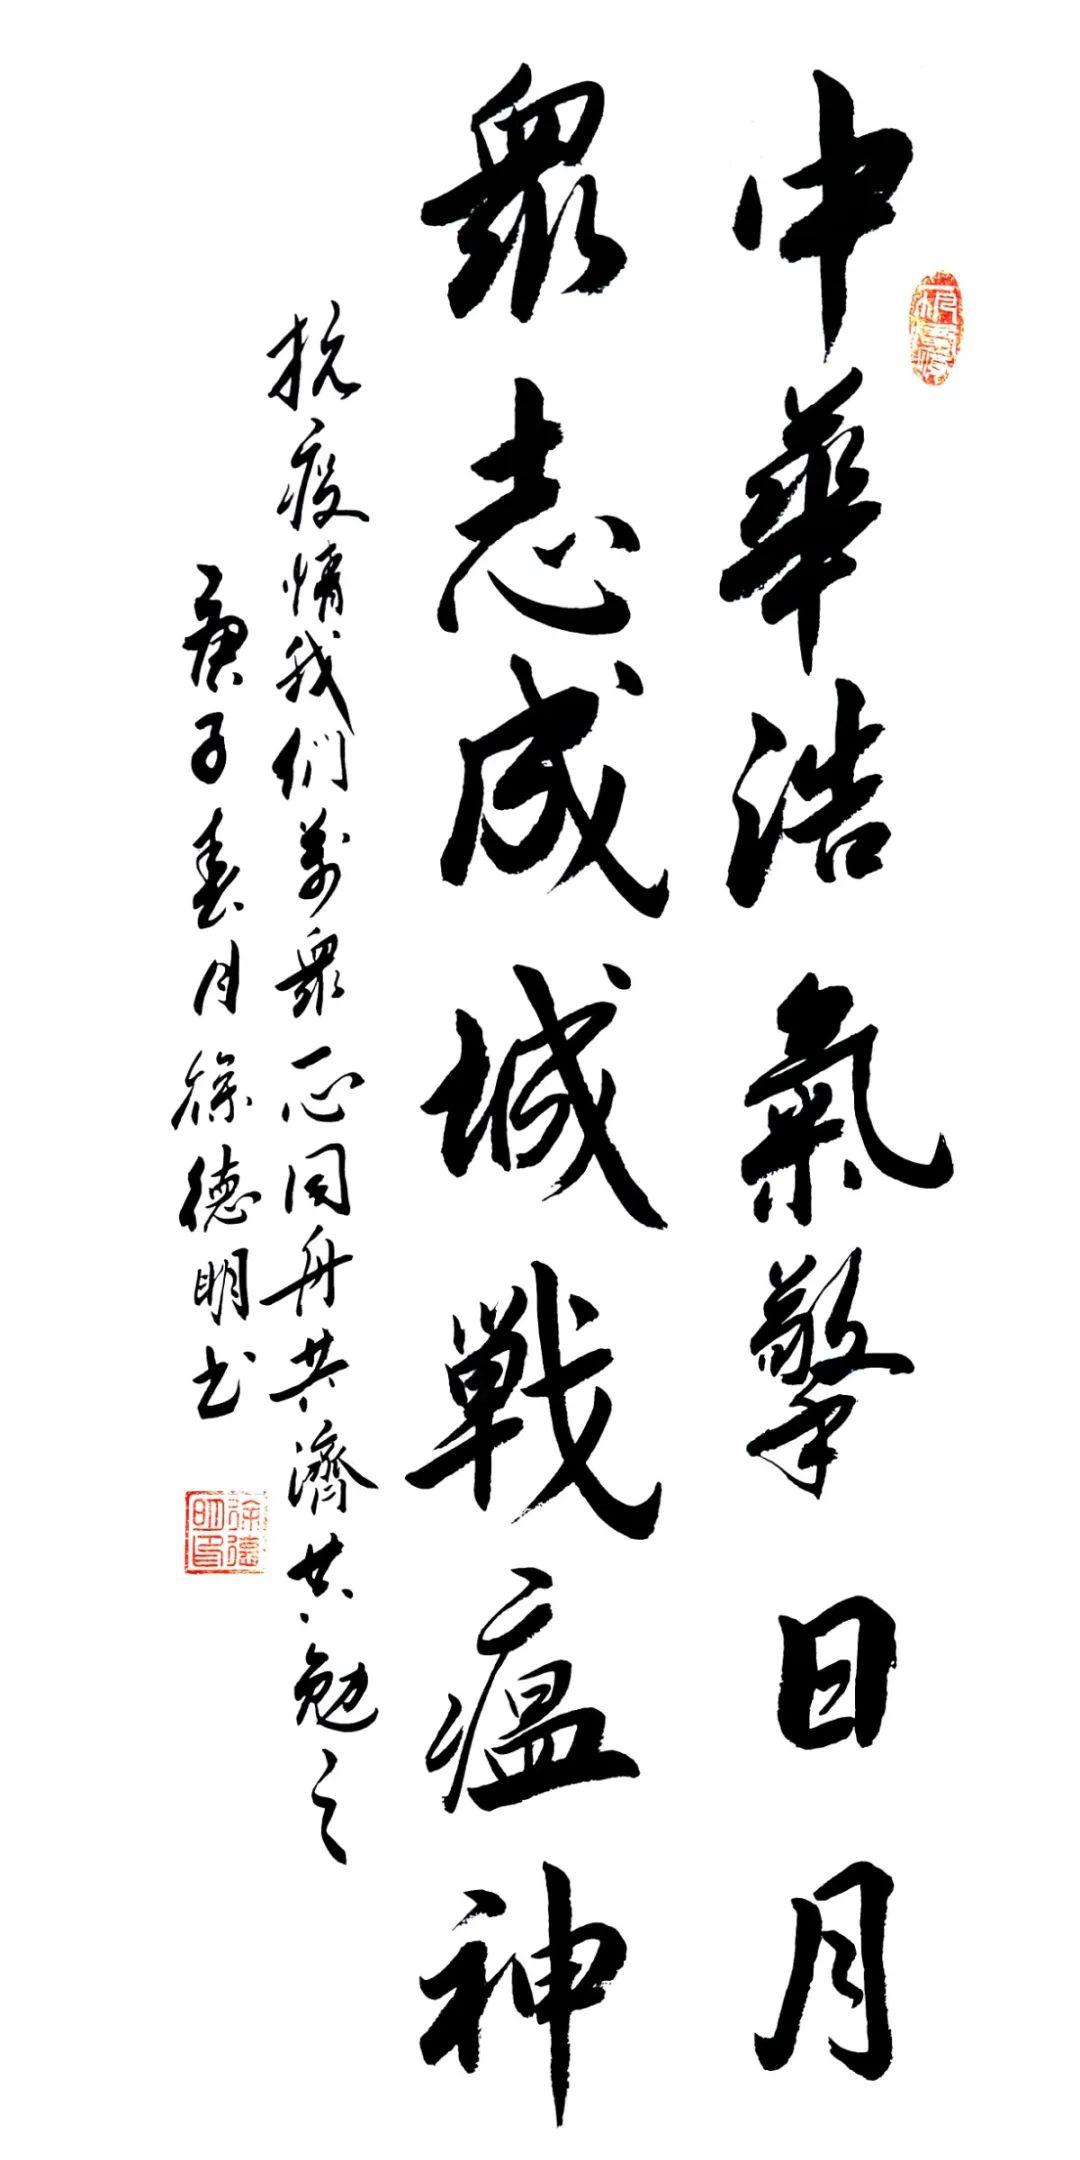 中華浩氣擎日月
衆志成城戰瘟神
抗疫情我们萬衆一心同舟共濟共勉之
庚子春月徐德明书
徐德明印